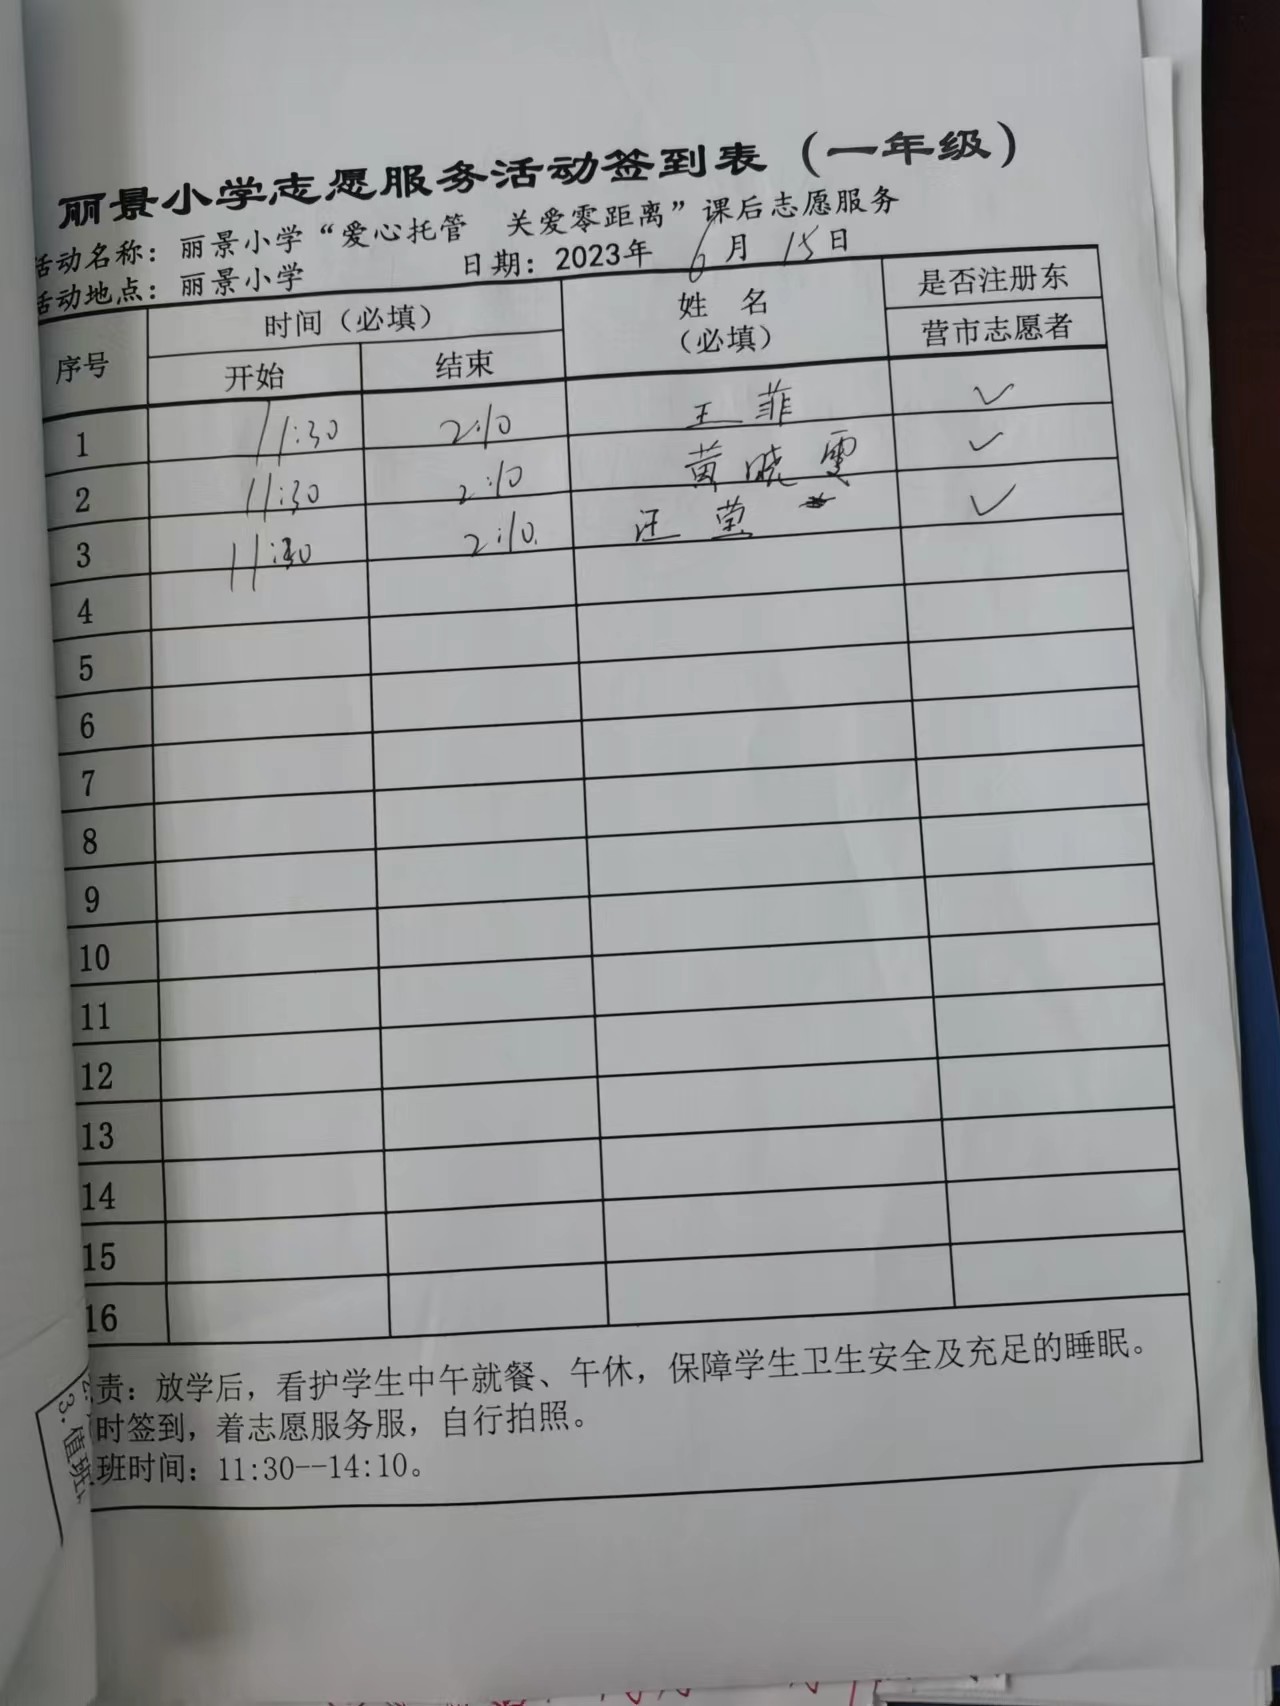 丽景小学志愿服务活动签到表（一年级）
活动名称：丽景小学“爱心托管 关爱零距离”课后志愿服务
活动地点：丽景小学 日期：2023年 6月 15日
序号 时间（必填） 姓 名（必填） 是否注册东营市志愿者
开始 结束
1 11:30 2:10 王菲 ✓
2 11:30 2:10 黄晓雯 ✓
3 11:30 2:10. 汪莹 ✓
4
5
6
7
8
9
10
11
12
13
14
15
16
责：放学后，看护学生中午就餐、午休，保障学生卫生安全及充足的睡眠。
时签到，着志愿服务服，自行拍照。
班时间：11:30--14:10。
3.值班